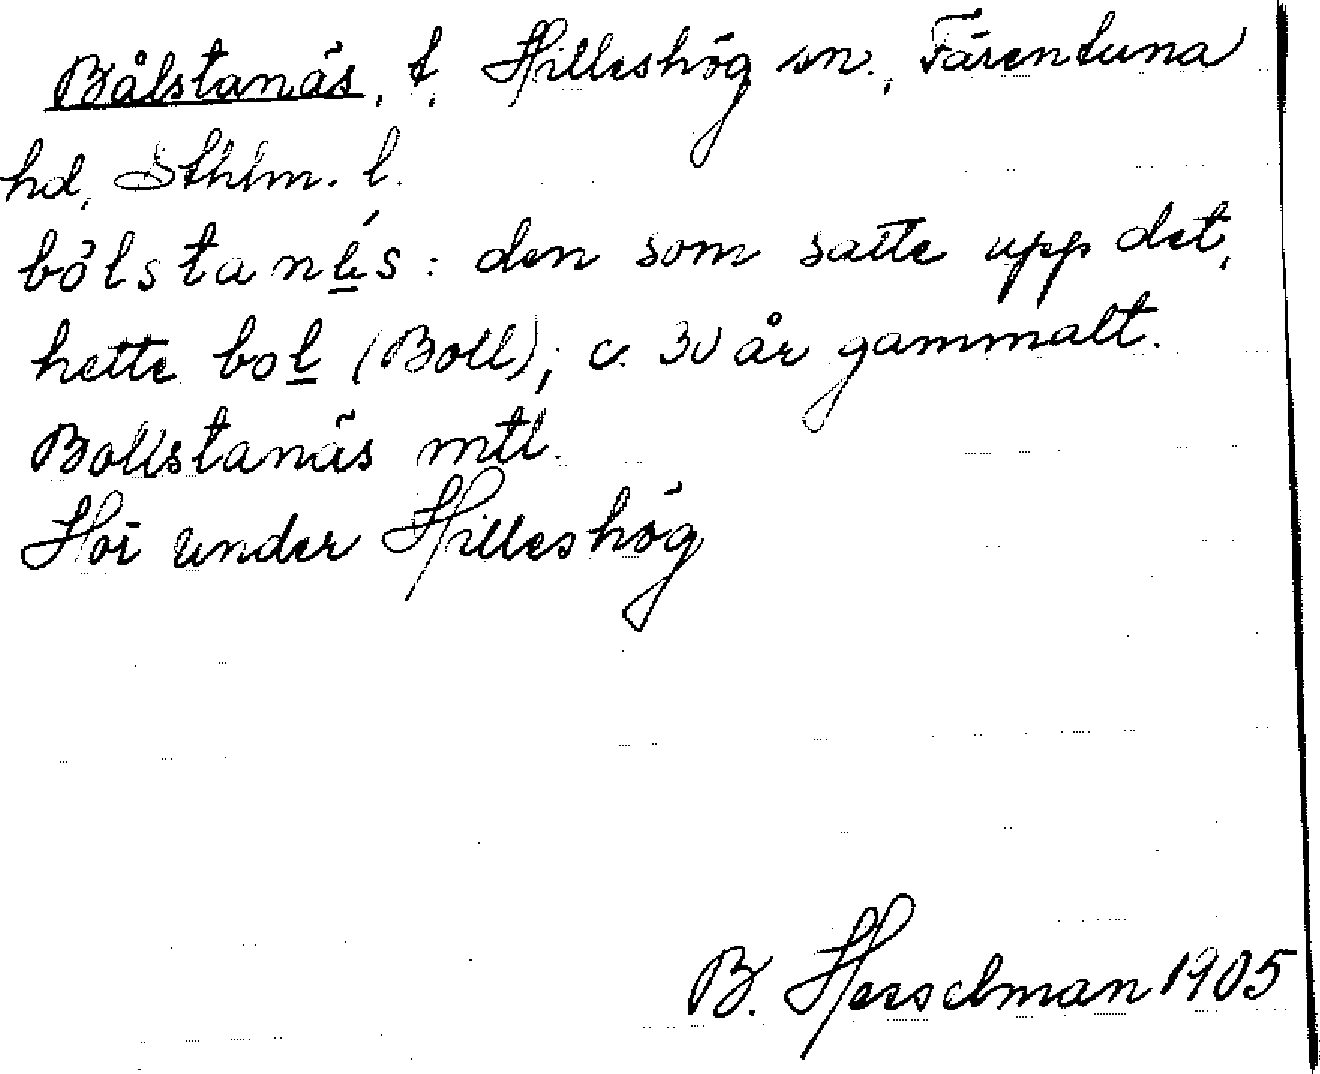 Bålstanäs, t. Hilleshög sn., Färentuna
hd, Sthlm. l.
bôlstanǽs: den som satte upp det,
hette bol (Boll); c. 30 år gammalt.
Bollstanäs mtl.
Hör under Hilleshög
B. Hesselman 1905